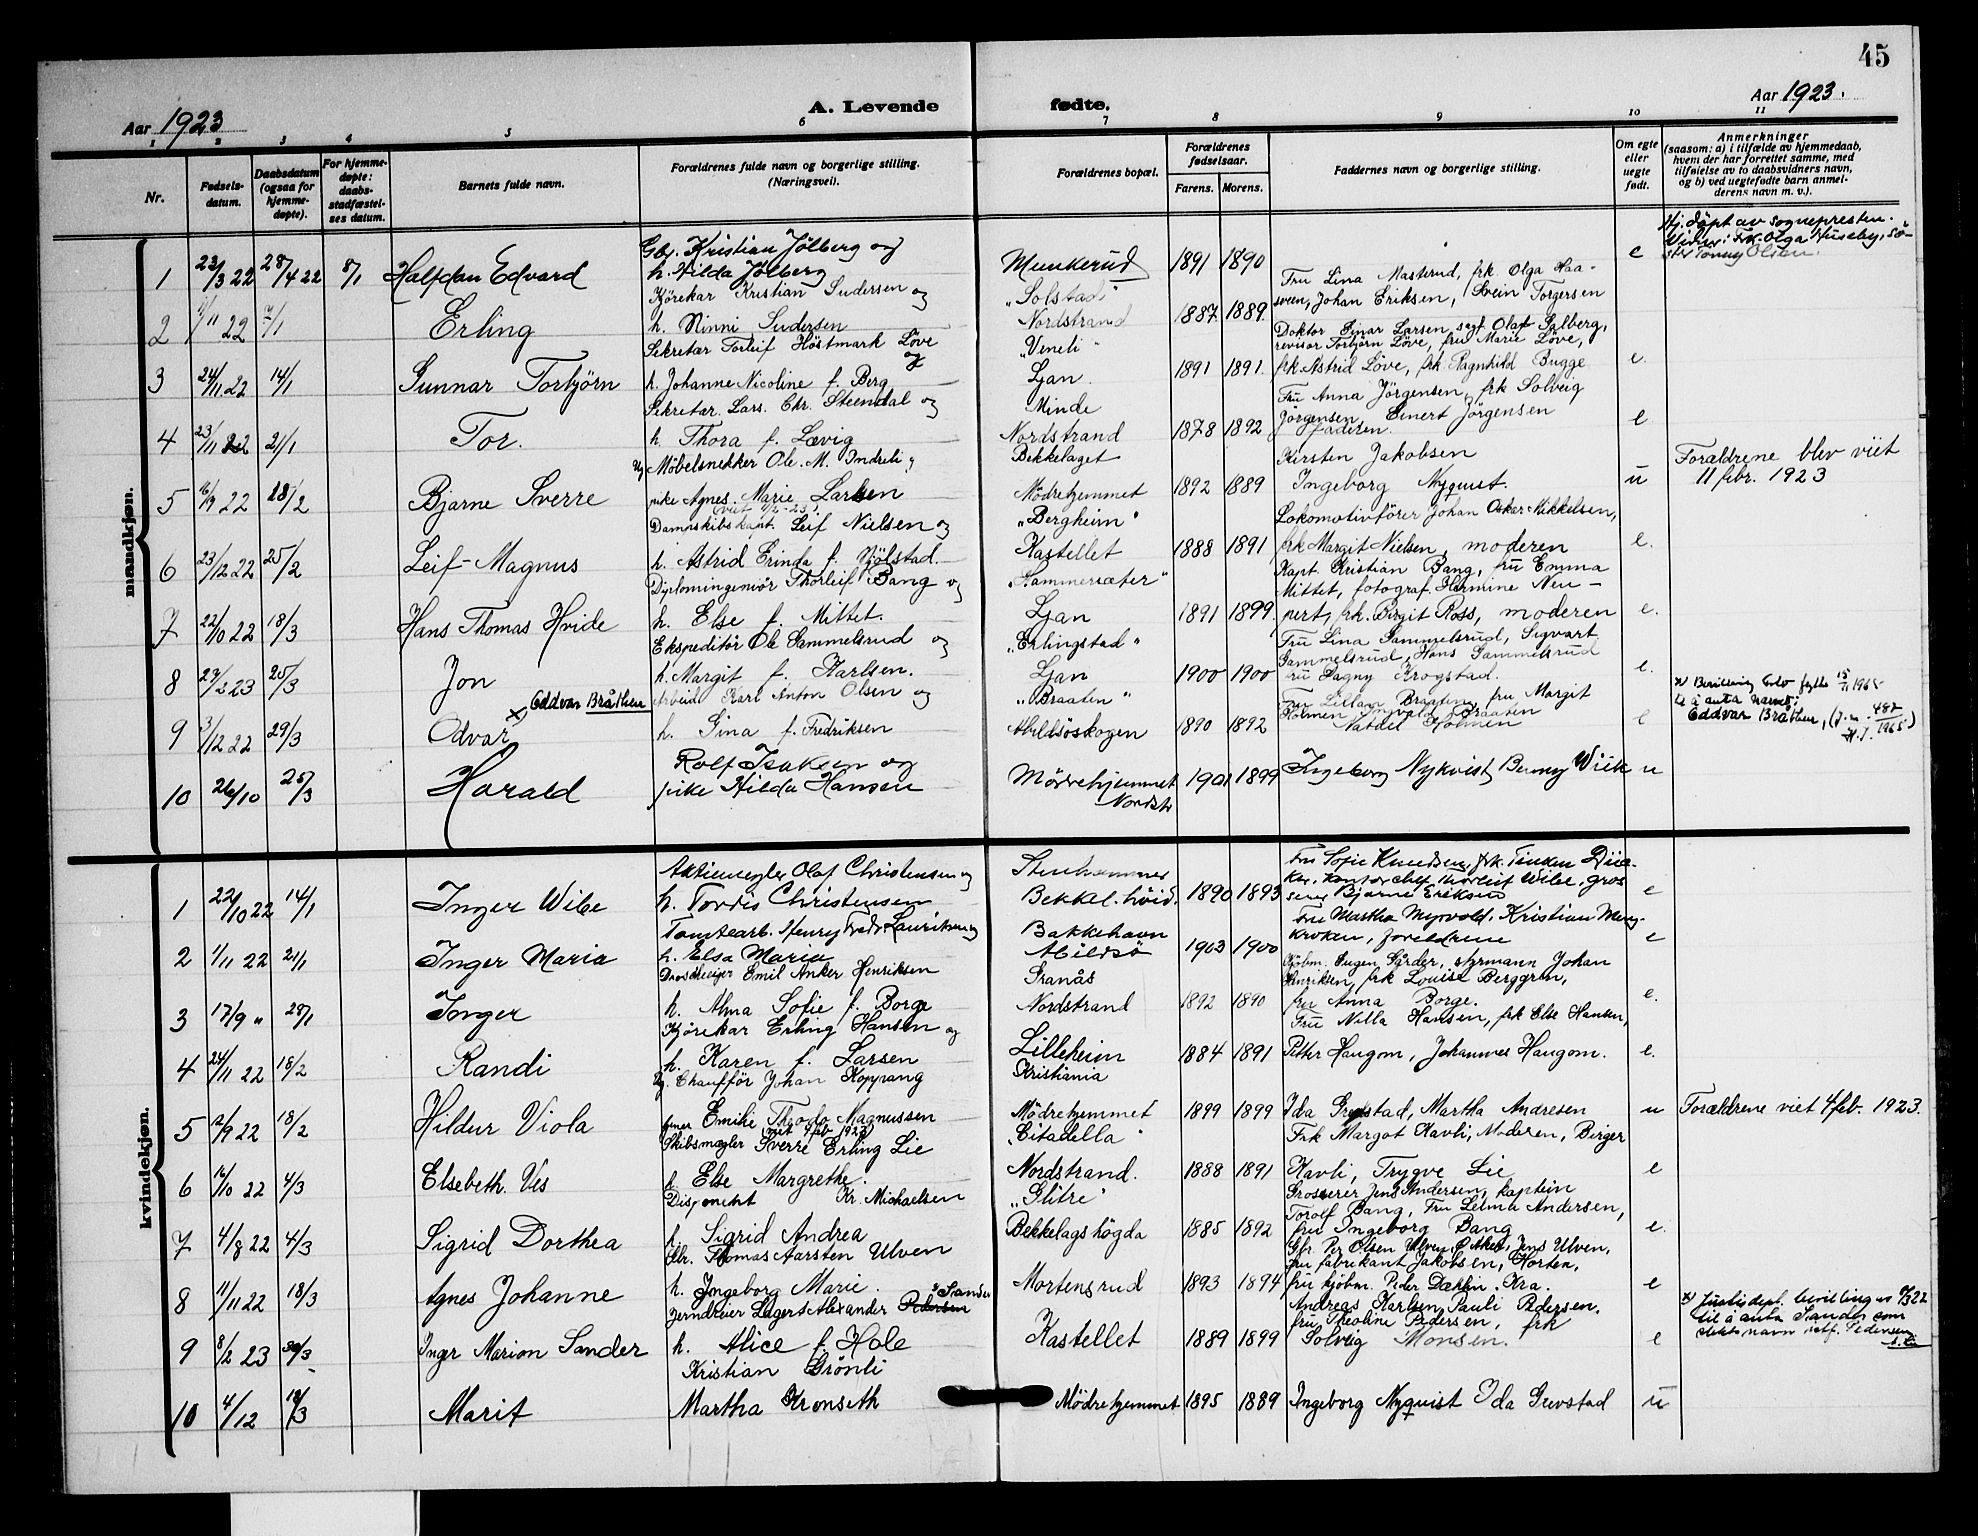 45
Aar 1923
A. Levende fødte.
Aar 1923.
1 2 3 4 5 6 7 8 9 10 11
Nr.
Fødsels-
datum.
Daabsdatum
(ogsaa for
hjemme-
døpte).
For hjemme-
døpte:
daabs-
stadfæstel-
ses datum.
Barnets fulde navn.
Forældrenes fulde navn og borgerlige stilling.
(Næringsvei).
Forældrenes bopæl.
Forældrenes
fødselsaar.
Farens. Morens.
Faddernes navn og borgerlige stilling.
Om egte
eller
uegte
født.
Anmerkninger
(saasom: a) i tilfælde av hjemmedaab,
hvem der har forrettet samme, med
tilføielse av to daabsvidners navn,
og b) ved uegtefødte barn anmel-
derens navn m. v.).
mandkjøn.
1 23/3 22 28/4 22 8/1 Halfdan Edvard
Gbr. Kristian Jølberg og
h. Hilda Jølberg
Munkerud 1891 1890 e
Hj. døpt av sognepresten.
Vidner: Frk. Olga Huseby, sø-
ster Tonny Olsen.
2 /11 22 /1 Erling
Kjørekar Kristian Sudersen og
h. Ninni Sudersen
"Solstad"
Nordstrand 1887 1889.
Fru Lina Masterud, frk Olga Haa-
sveen, Johan Eriksen, Svein Torgersen
3 24/11 22 14/1 Gunnar Torbjörn
Sekretær Torleif Höstmark Löve
og
h. Johanne Nicoline f. Berg
"Veneli"
Ljan 1891 1891.
Doktor Einar Larsen, sagf. Olaf Salberg,
revisor Torbjörn Löve, fru Marie Löve,
frk Astrid Löve, frk. Ragnhild Bugge e.
4 23/11 22 21/1 Tor.
Sekretær. Lars. Chr. Steendal og
h. Thora f. Lævig
Minde
Nordstrand 1878 1892
Fru Anna Jörgensen, frk Solveig
Jörgensen, Einert Jörgensen
faderen. e
5 16/9 22 18/2 Bjarne Sverre
Ug Møbelsnekker Ole. M. Indreli og
pike Agnes. Marie Larsen
(viet 11/2-23).
Bekkelaget
Mödrehjemmet 1892 1889
Kirsten Jakobsen
Ingeborg Nyquist. u
Forældrene blev viet
11 febr. 1923
6 23/12 22 25/2 Leif-Magnus
Dampskibskapt. Leif Nielsen og
h. Astrid Erinda f. Njölstad.
"Bergheim"
Kastellet 1888 1891
Lokomotivförer Johan Oskar Mikkelsen,
frk Margit Nielsen, moderen e.
7 22/10 22 18/3 Hans Thomas Hvide
Diplomingeniör Thorleif Bang og
h. Else f. Mittet.
"Hammersæter"
Ljan 1891 1899
Kapt. Kristian Bang, fru Emma
Mittet, fotograf Hermine Neu-
pert, frk. Birgit Ross, moderen e.
8 27/2 23 25/3 Jon
Ekspeditör Ole Gammelsrud og
h. Margit f. Karlsen.
"Erlingstad"
Ljan 1900 1900
Fru Lina Gammelsrud, Sigvart
Gammelsrud, Hans Gammelsrud
fru Dagny Krogstad. e.
9 3/12 22 29/3 Oddvar Bråthen
x) Odvar
Arbeider Karl Anton Olsen og
h. Gina f. Fredriksen
"Braaten"
Abildsöskogen 1890 1892
Fru Lillan Braaten, fru Margit
Holmen, Ingvald Braaten
Holmen e
x) Bevilling Oslo fylke 15/11 1965
til å anta navnet:
Oddvar Bråthen, (J.n. 487/1965)
H.J.
10 26/10 25/3 Harald
Rolf Isaksen og
pike Hilda Hansen
Mödrehjemmet
Nordstr 1901 1899
Ingeborg Nykvist, Benny Wiik u
kvindekjøn.
1 22/10 22 14/1 Inger Wibe
Aktiemegler Olaf Christensen og
h. Tordis Christensen
Stenhammer
Bekkel. höid. 1890 1893
Fru Sofie Knudsen, frk. Tinken Diie-
ker, kontorchef Thorleif Wibe, gros
serer Bjarne Eriksen e
2 1/11 22 21/1 Inger Maria
Tomtearb. Henry Fredr Lauritsen og
h. Elsa Maria
Bakkehavn
Abildsö 1903 1900
Fru Martha Myrvold, Kristian Meng-
kroken, foreldrene e
3 17/9 " 28/1 Inger
Droscheeier Emil Anker Henriksen
h. Alma Sofie f. Borge
Granås
Nordstrand 1892 1890
Kjöbm. Eugen Gårder, styrmann Johan
Henriksen, frk Louise Berggren,
fru Anna Borge. e.
4 24/11 22 18/2 Randi
Kjörekar Erling Hansen og
h. Karen f. Larsen
Lilleheim 1884 1891
Fru Nilla Hansen, frk Else Hansen,
Petter Haugom, Johannes Haugom. e.
5 12/9 22 18/2 Hildur Viola
Ug. Chaufför Johan Koppang
Emilie Theodo Magnussen
(viet 4 feb 1923)
Kristiania
Mödrehjemmet 1899 1899
Ida Grevstad, Martha Andresen u
Forældrene viet 4 feb. 1923.
6 16/10 22 4/3 Elsebeth. Ves
Skibsmægler Sverre Erling Lie
h. Else Margrethe.
"Citadella"
Nordstrand. 1888 1891
Frk Margot Havli, Moderen, Birger
Havli, Trygve Lie e
7 4/8 22 4/3 Sigrid Dorthea
Disponent Kr. Michaelsen
h. Sigrid Andrea
"Glitre"
Bekkelagshögda 1885 1892
Grosserer Jens Andersen, kaptein
Torolf Bang, Fru Selma Andersen,
fru Ingeborg Bang e.
8 11/11 22 18/3 Agnes Johanne
Gbr. Thomas Aarsten Ulven
h. Ingeborg Marie.
Mortensrud 1893 1894
Gfr. Per Olsen Ulven, Jens Ulven,
fru fabrikant Jakobsen, Horten,
fru kjöbm. Peder Dæhlin. Kra. e
9 8/2 23 30/3 Inger Marion Sander
x Sander
Jerndreier Lagert Alexander Pedersen
h. Alice f. Hole
Kastellet 1889 1899
Andreas Karlsen, Pauli Pedersen.
fru Theoline Pedersen, frk
Solveig Monsen. e
x) Justisdept. bevilling av 9/3 22
til å anta Sander som
slektsnavn istf. Pedersen
10 4/12 18/3 Marit
Kristian Grönli
Martha Kronseth
Mödrehjemmet 1895 1889
Ingeborg Nyquist Ida Grevstad u